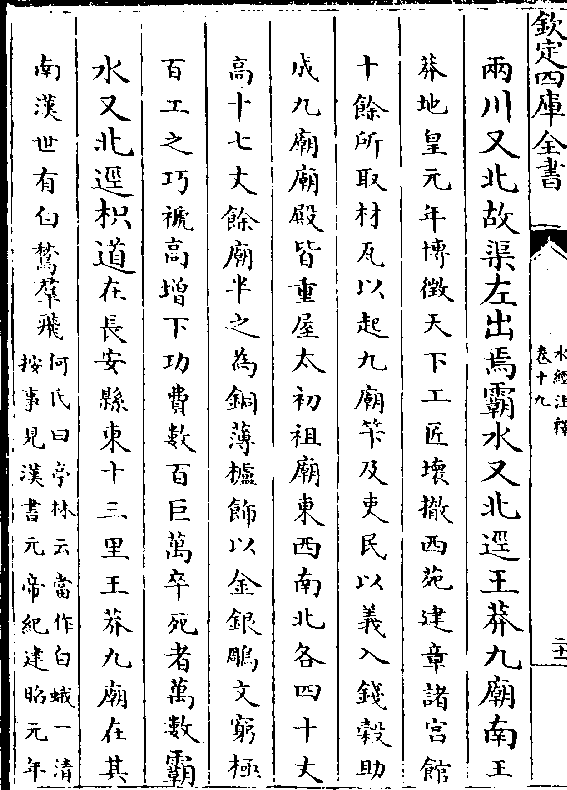 欽定四庫全書
水經注釋
卷十九
二十
兩川又北故渠左出焉霸水又北逕王莽九廟南王
莽地皇元年博徵天下工匠壞撤西苑建章諸宮館
十餘所取材瓦以起九廟筭及吏民以義入錢穀助
成九廟廟殿皆重屋太初祖廟東西南北各四十丈
高十七丈餘廟半之為銅薄櫨飾以金銀雕文窮極
百工之巧褫高增下功費數百巨萬卒死者萬數霸
水又北逕枳道在長安縣東十三里王莽九廟在其
南漢世有白鶩羣飛何氏曰亭林云當作白蛾一清
按事見漢書元帝紀建昭元年